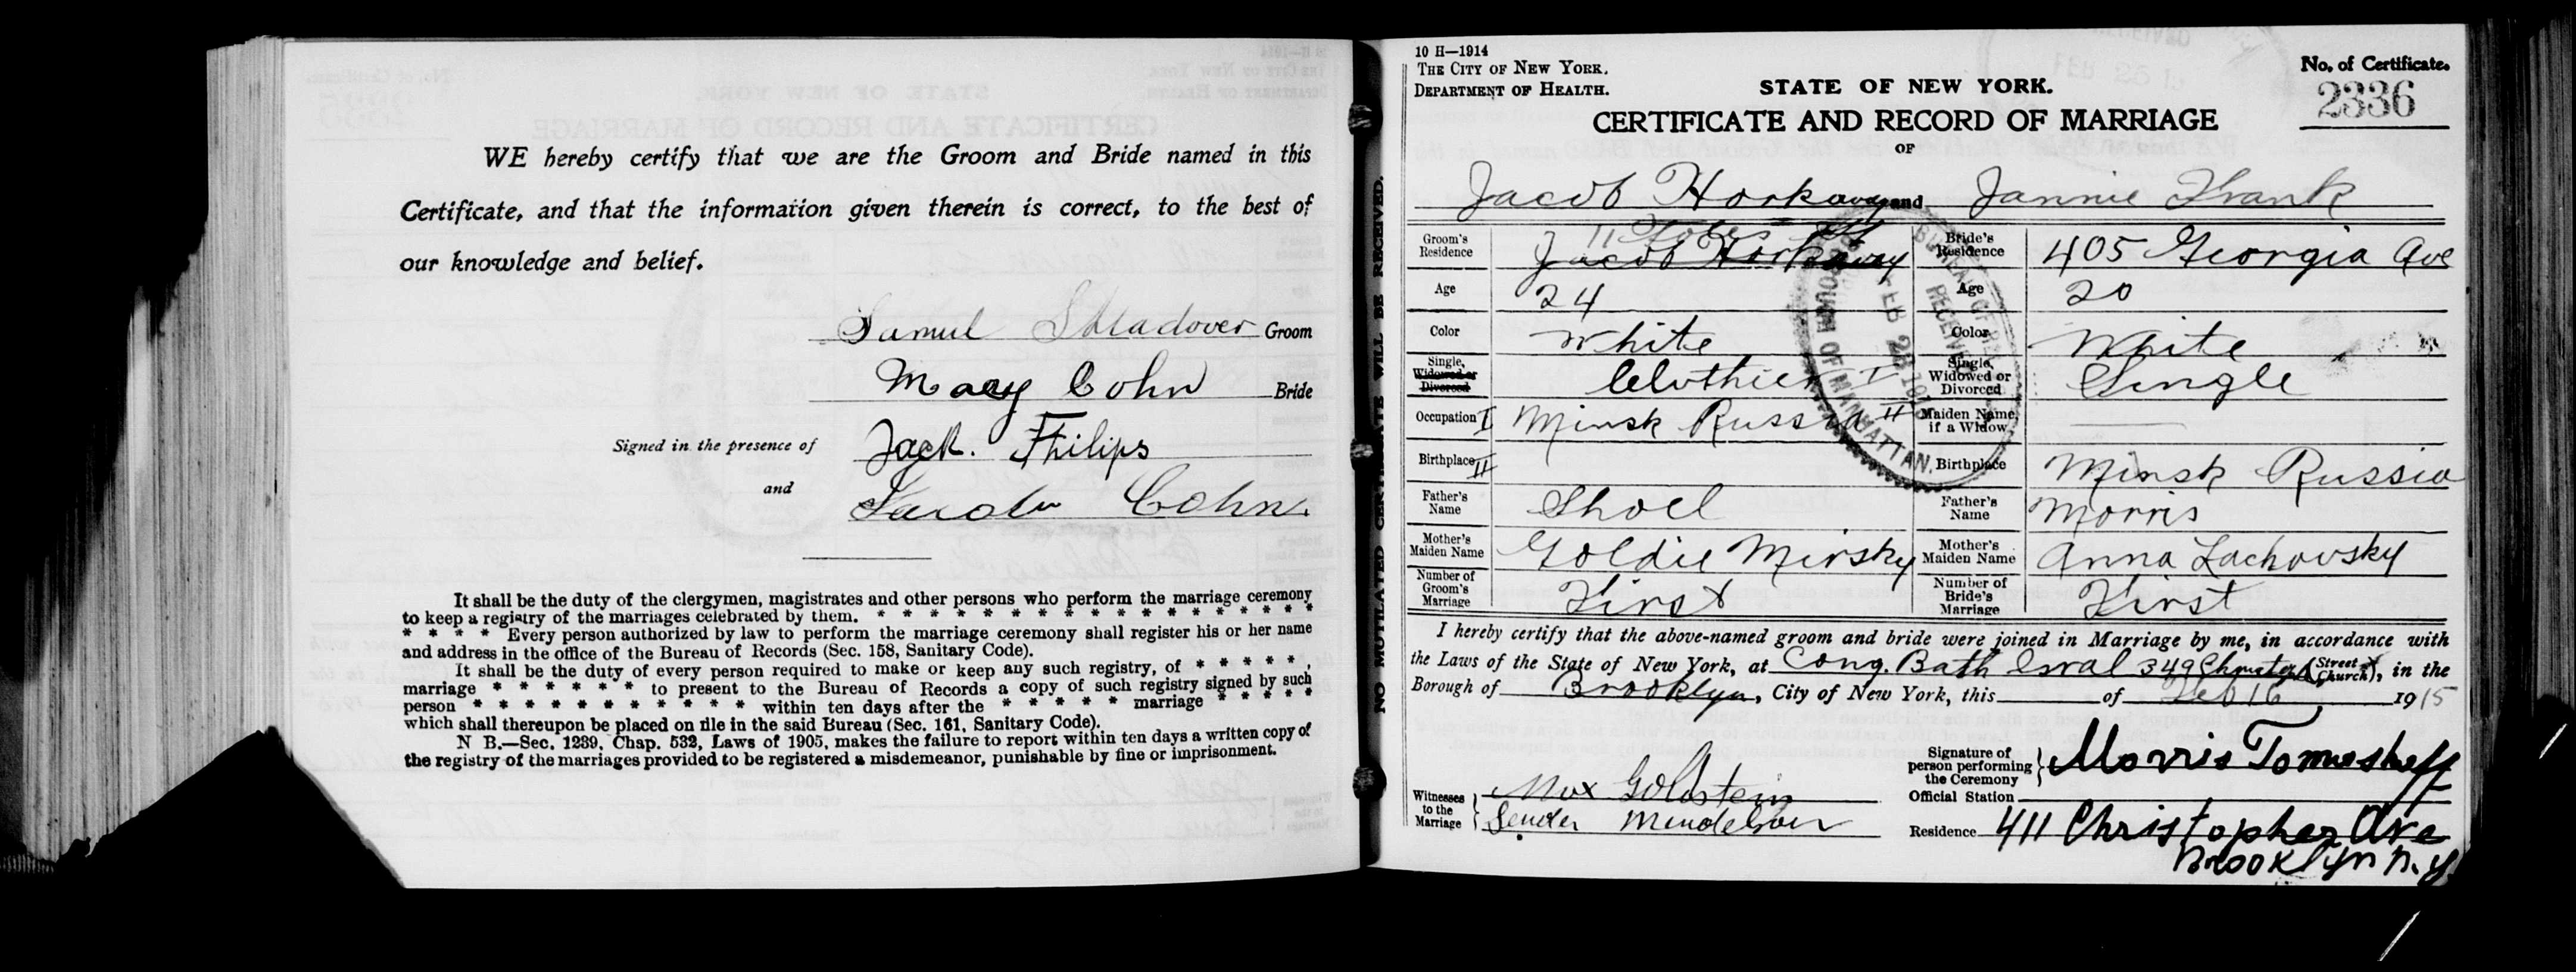 WE hereby certify that we are the Groom and Bride named in this
Certificate, and that the information given therein is correct, to the best of
our knowledge and belief.
Samuel Shladover Groom
Mary Cohn Bride
Signed in the presence of Jack. Philips
and Cohn.
It shall be the duty of the clergymen, magistrates and other persons who perform the marriage ceremony
to keep a registry of the marriages celebrated by them. * * * * * * * * * * * * * * * * * *
* * * * Every person authorized by law to perform the marriage ceremony shall register his or her name
and address in the office of the Bureau of Records (Sec. 158, Sanitary Code).
It shall be the duty of every person required to make or keep any such registry, of * * * * *,
marriage * * * * * * to present to the Bureau of Records a copy of such registry signed by such
person * * * * * * * * * * within ten days after the * * * * * marriage * * * * *
which shall thereupon be placed on file in the said Bureau (Sec. 161, Sanitary Code).
N B.—Sec. 1239, Chap. 532, Laws of 1905, makes the failure to report within ten days a written copy of
the registry of the marriages provided to be registered a misdemeanor, punishable by fine or imprisonment.
NO MUTILATED CERTIFICATE WILL BE RECEIVED.
10 H—1914
THE CITY OF NEW YORK.
DEPARTMENT OF HEALTH.
STATE OF NEW YORK.
No. of Certificate.
2336
CERTIFICATE AND RECORD OF MARRIAGE
OF
Jacob Horkavy and Jannie Frank
Groom's Residence 11 St
Jacob Horkavy
Bride's Residence 405 Georgia Ave
Age 24
Age 20
Color White
Color White
Single, Widowed or Divorced Clothier I
Single, Widowed or Divorced Single
Occupation I Minsk Russia II
Maiden Name, if a Widow
Birthplace II
Birthplace Minsk Russia
Father's Name Shoel
Father's Name Morris
Mother's Maiden Name Goldie Mirsky
Mother's Maiden Name Anna Lachovsky
Number of Groom's Marriage First
Number of Bride's Marriage First
I hereby certify that the above-named groom and bride were joined in Marriage by me, in accordance with
the Laws of the State of New York, at Cong. Bath Isral 349 (Street Church), in the
Borough of Brooklyn, City of New York, this of Feb 16 1915
Signature of person performing the Ceremony Morris Tomasheff
Witnesses to the Marriage Max Goldstein
Sender Mendelson
Official Station
Residence 411 Christopher Ave
Brooklyn N.Y.
BUREAU OF RECORDS
RECEIVED
FEB 26 1915
BOROUGH OF MANHATTAN.